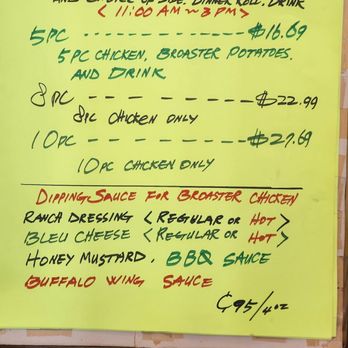 AND CHOICE OF SIDE. DINNER ROLL. DRINK
< 11:00 AM ~ 3 PM >
5PC ------------ $16.69
5 PC CHICKEN, BROASTER POTATOES.
AND DRINK
8PC ------------ $22.99
8PC CHICKEN ONLY
10PC ------------ $27.69
10PC CHICKEN ONLY
DIPPING SAUCE FOR BROASTER CHICKEN
RANCH DRESSING < REGULAR OR HOT >
BLEU CHEESE < REGULAR OR HOT >
HONEY MUSTARD, BBQ SAUCE
BUFFALO WING SAUCE
¢95/4oz